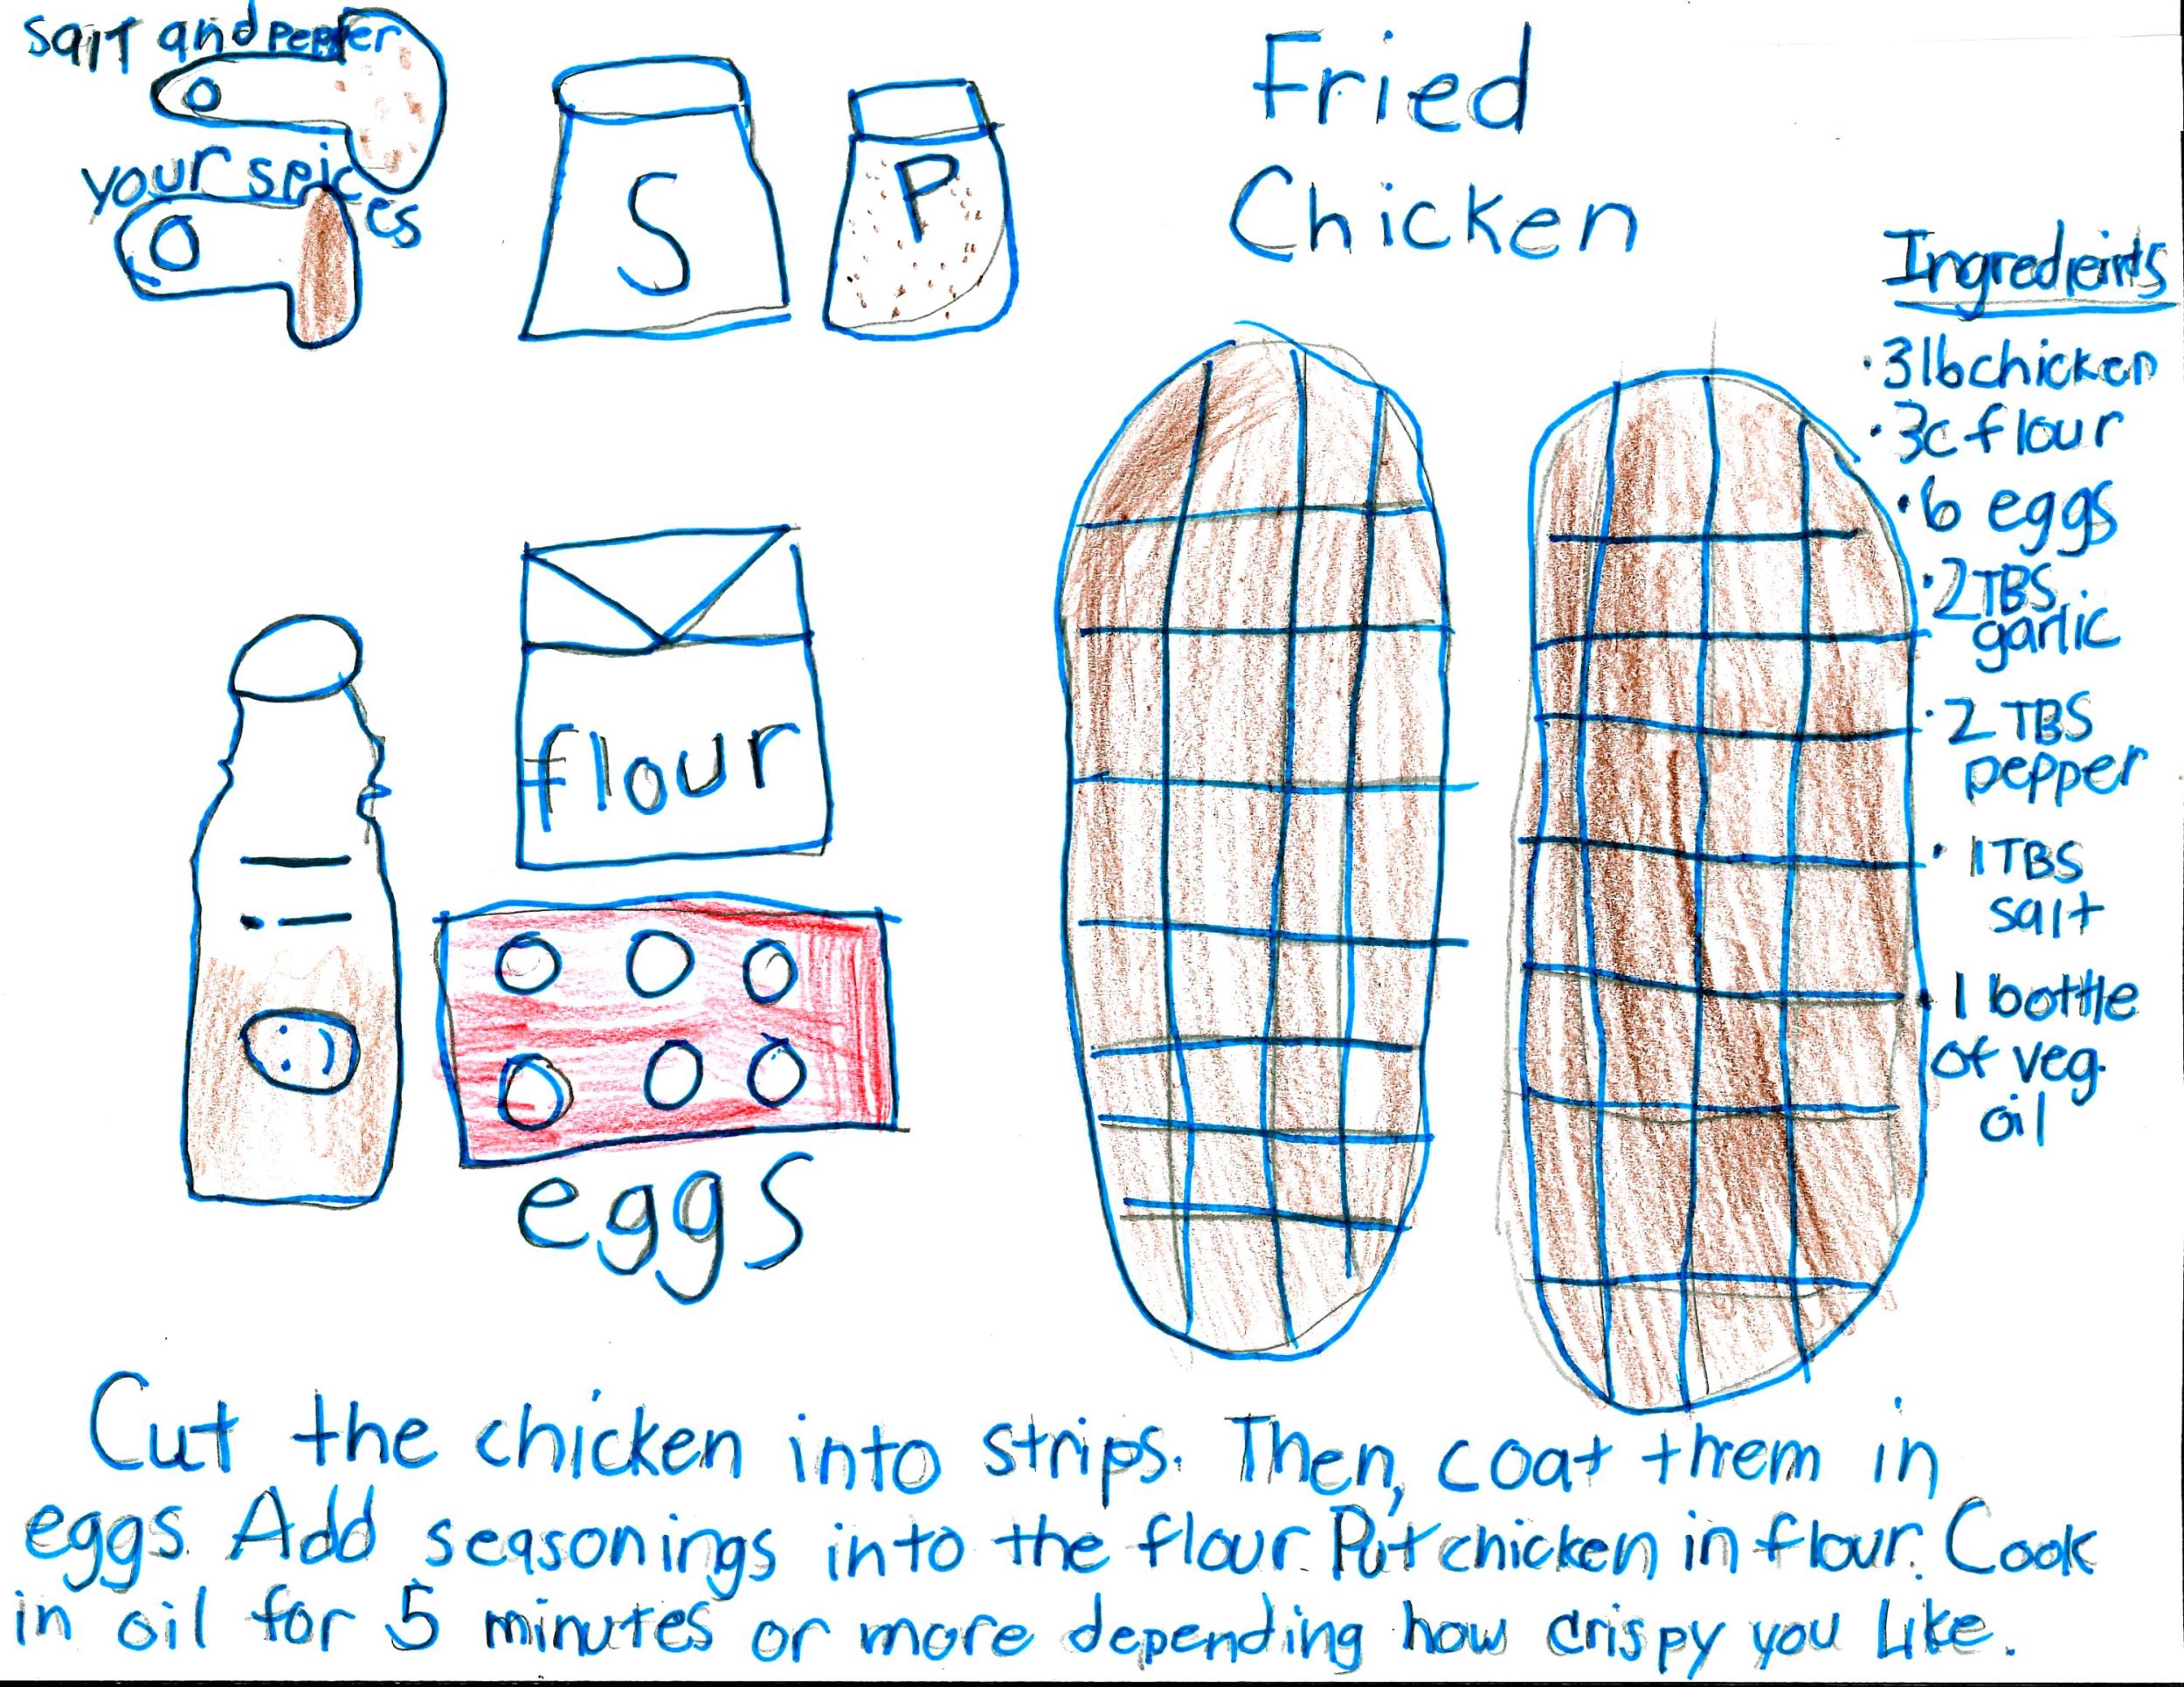 salt and pepper
your spices
S
P
Fried
Chicken
Ingredieints
· 3lb chicken
· 3c flour
· 6 eggs
· 2 TBS
garlic
· 2 TBS
pepper
· 1 TBS
salt
· 1 bottle
of veg.
oil
flour
eggs
Cut the chicken into strips. Then, coat them in
eggs. Add seasonings into the flour. Put chicken in flour. Cook
in oil for 5 minutes or more depending how crispy you like.